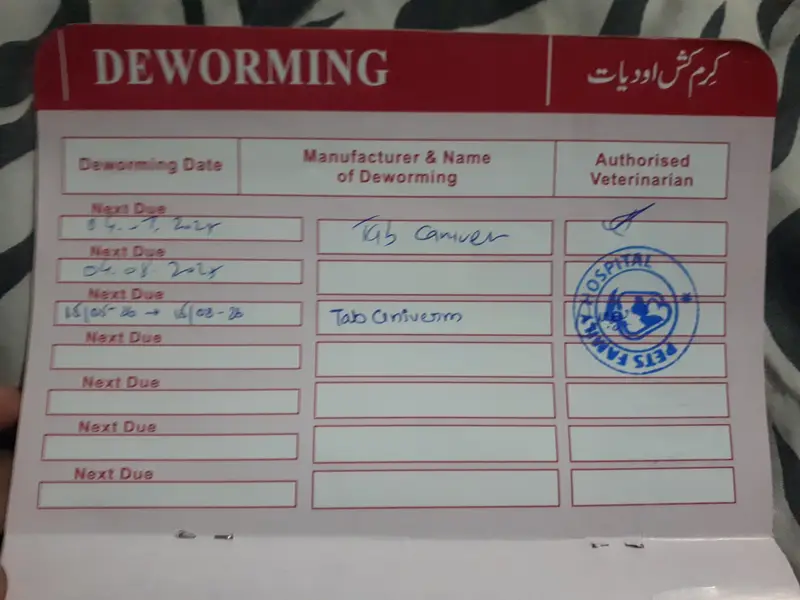 DEWORMING
کِرم کش اودیات
Deworming Date
Manufacturer & Name of Deworming
Authorised Veterinarian
Next Due
Tab Caniver
Next Due
04.08.
Next Due
15/05-26 → 15/08-26
Tab Caniverm
PETS FAMILY HOSPITAL
Next Due
Next Due
Next Due
Next Due